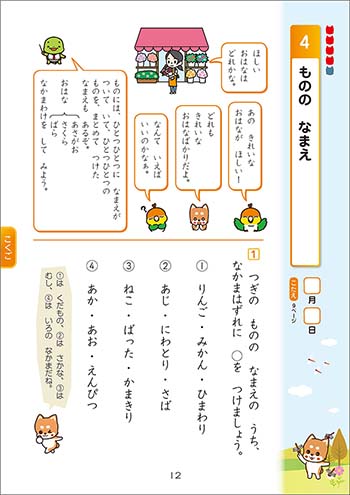 4
ものの　なまえ
月
日
こたえ
9ページ
ほしい
おはなは
どれかな。
あの　きれいな
おはなが　ほしい！
どれも
きれいな
おはなばかりだよ。
なんて　いえば
いいのかなぁ。
ものには、ひとつひとつに　なまえが
ついて　いて、ひとつひとつの
ものを、まとめて　つけた
なまえも　あるぞ。
おはな
あさがお
さくら
ばら
なかまわけを　して　みよう。
1
つぎの　ものの　なまえの　うち、
なかまはずれに　◯を　つけましょう。
① りんご・みかん・ひまわり
② あじ・にわとり・さば
③ ねこ・ばった・かまきり
④ あか・あお・えんぴつ
①は　くだもの、②は　さかな、③は
むし、④は　いろの　なかまだね。
こくご
12